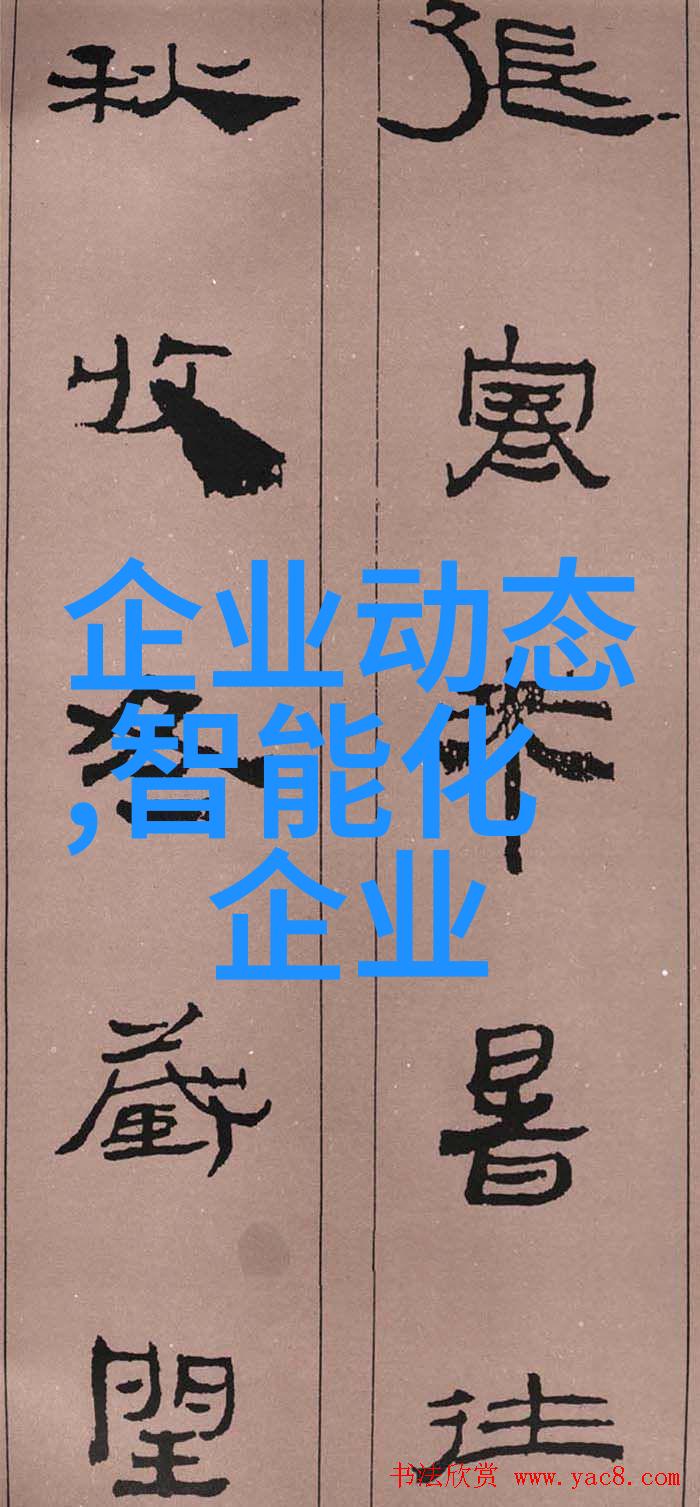 張寒來暑往
秋收冬藏閏
企业动态
,智能化
企业
书法欣赏 www.yac8.com